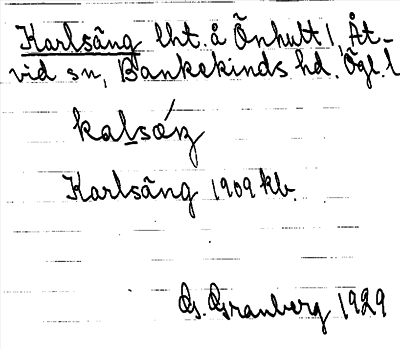 Karlsäng lht. å Önhult 1, Åt-
vid sn, Bankekinds hd. Ögl. l
kalsǽŋ
Karlsäng 1909 kb.
G. Granberg 1929